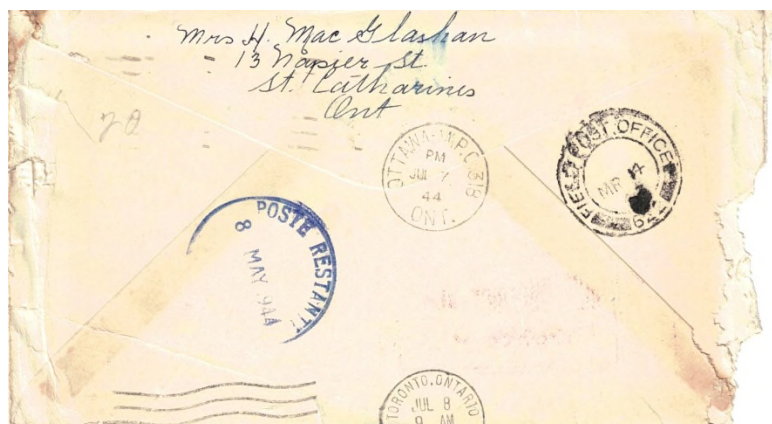 Mrs H. Mac Glashan
13 Napier St.
St. Catharines
Ont
20
OTTAWA M.P.C. 318
PM
JUL 7
44
ONT.
FIELD POST OFFICE
MR
POSTE RESTANTE
8 MAY 944
TORONTO, ONTARIO
JUL 8
9 AM